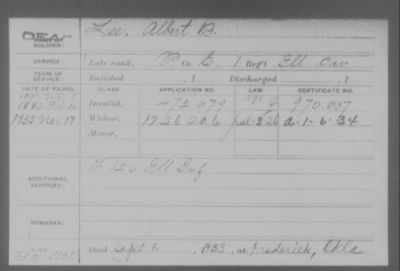 Lee, Albert B.
SOLDIER:
SERVICE:
Late rank, P Co. E, 1 Reg't Ill Cav
TERM OF SERVICE:
Enlisted , 1 Discharged , 1
DATE OF FILING. CLASS. APPLICATION NO. LAW. CERTIFICATE NO.
Invalid, 472679 970.037
1932 Nov 19 Widow, 1736206 a-1-6-34
Minor,
126 Ill Inf
ADDITIONAL SERVICES:
REMARKS:
Died Sept 6, 1923, at Frederick, Okla